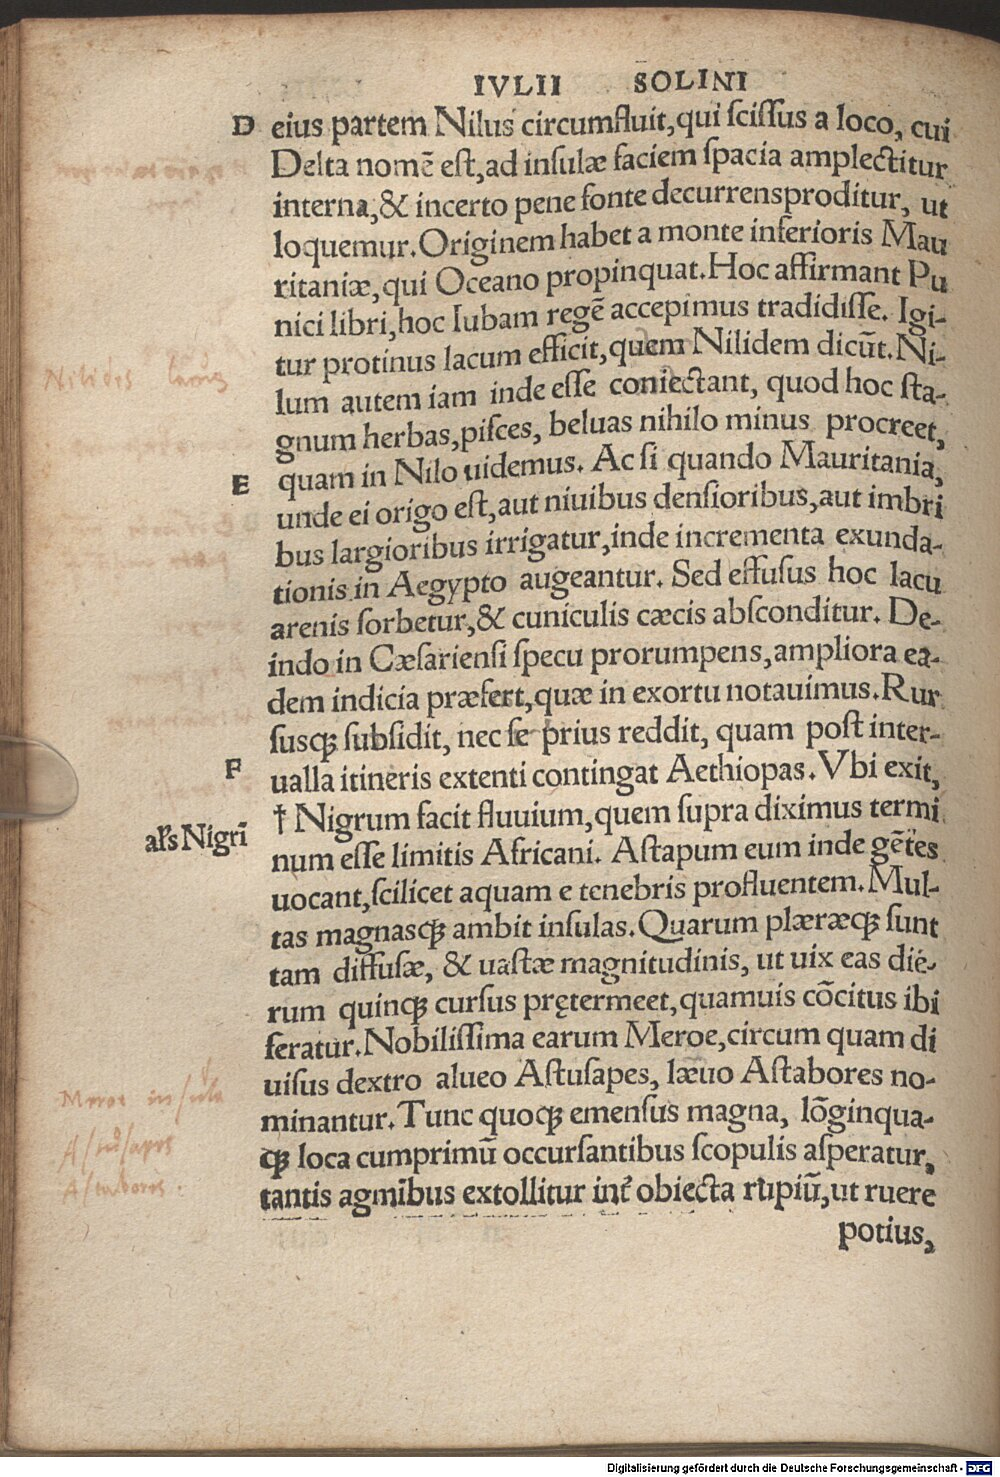 IVLII SOLINI
D eius partem Nilus circumfluit, qui ſciſſus a loco, cui
Delta nomē eſt, ad inſulæ faciem ſpacia amplectitur
interna, & incerto pene fonte decurrensproditur, ut
loquemur. Originem habet a monte inferioris Mau
ritaniæ, qui Oceano propinquat. Hoc affirmant Pu
nici libri, hoc Iubam regē accepimus tradidiſſe. Igi-
tur protinus lacum efficit, quem Nilidem dicūt. Ni-
Nilidis lacus
lum autem iam inde eſſe coniectant, quod hoc ſta-
gnum herbas, piſces, beluas nihilo minus procreet,
E quam in Nilo uidemus. Ac ſi quando Mauritania,
unde ei origo eſt, aut niuibus denſioribus, aut imbri
bus largioribus irrigatur, inde incrementa exunda-
tionis in Aegypto augeantur. Sed effuſus hoc lacu
arenis ſorbetur, & cuniculis cæcis abſconditur. De-
indo in Cæſarienſi ſpecu prorumpens, ampliora ea-
dem indicia præfert, quæ in exortu notauimus. Rur
ſusꝗ ſubſidit, nec ſe prius reddit, quam poſt inter-
F ualla itineris extenti contingat Aethiopas. Vbi exit,
† Nigrum facit fluuium, quem ſupra diximus termi
al's Nigrī
num eſſe limitis Africani. Aſtapum eum inde gētes
uocant, ſcilicet aquam e tenebris profluentem. Mul-
tas magnasꝗ ambit inſulas. Quarum plæræꝗ ſunt
tam diffuſæ, & uaſtæ magnitudinis, ut uix eas dié-
rum quinꝗ curſus prętermeet, quamuis cōcitus ibi
feratur. Nobiliſſima earum Meroe, circum quam di
uiſus dextro alueo Aſtuſapes, læuo Aſtabores no-
Meroe inſula
minantur. Tunc quoꝗ emenſus magna, lōginqua-
Aſtuſapes
ꝗ loca cumprimū occurſantibus ſcopulis aſperatur,
Aſtabores.
tantis agmībus extollitur int' obiecta rupiū, ut ruere
potius,
Digitalisierung gefördert durch die Deutsche Forschungsgemeinschaft - DFG